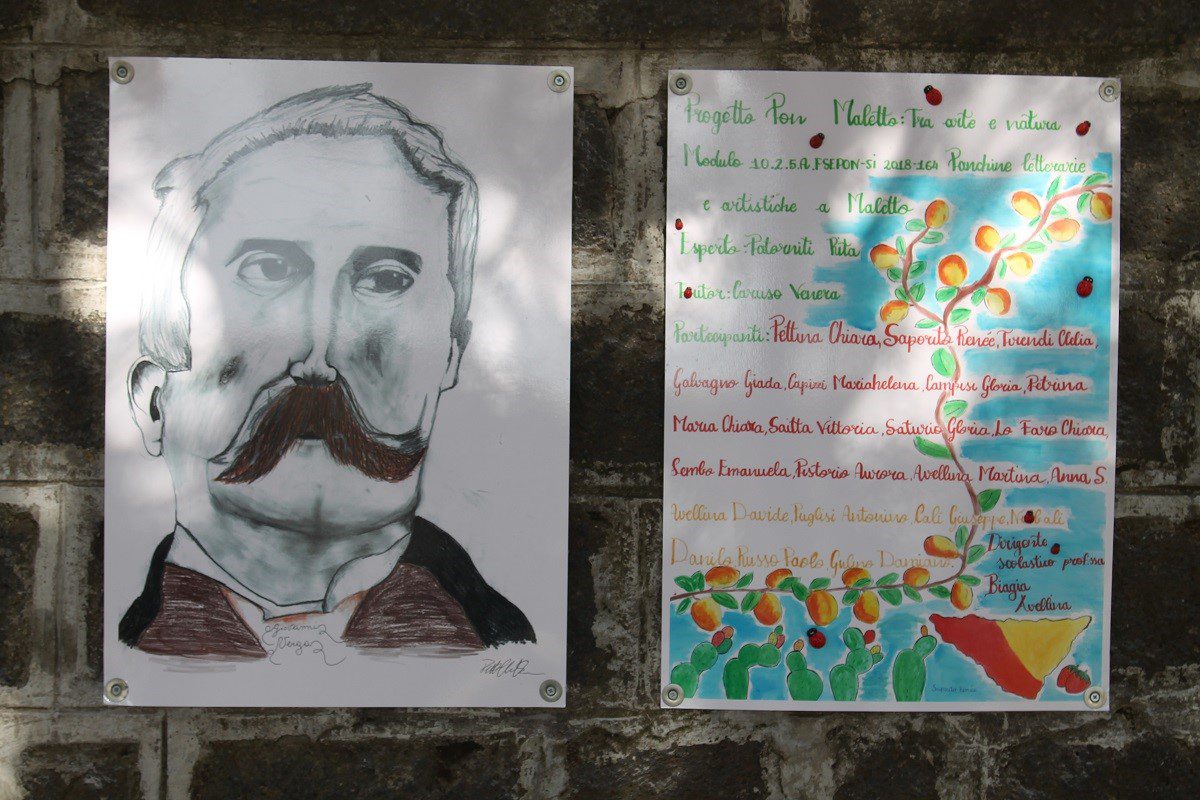 Giovanni
Verga
Progetto Pon Maletto: Tra arte e natura
Modulo 10.2.5.A.FSEPON-SI 2018-164 Panchine letterarie
e artistiche a Maletto
Esperto: Patorniti Rita
Tutor: Caruso Venera
Partecipanti: Pettina Chiara, Saporito Renée, Tirendi Clelia,
Galvagno Giada, Capizzi Mariahelena, Campisi Gloria, Petrina
Maria Chiara, Saitta Vittoria, Saturio Gloria, Lo Faro Chiara,
Sembo Emanuela, Pistorio Aurora, Avellina Martina, Anna S.
Avellina Davide, Puglisi Antonino, Calì Giuseppe,
Danilo Russo Paolo Gulino Damiano.
Dirigente
scolastico prof.ssa
Biagia
Avellina
Saporito Renée